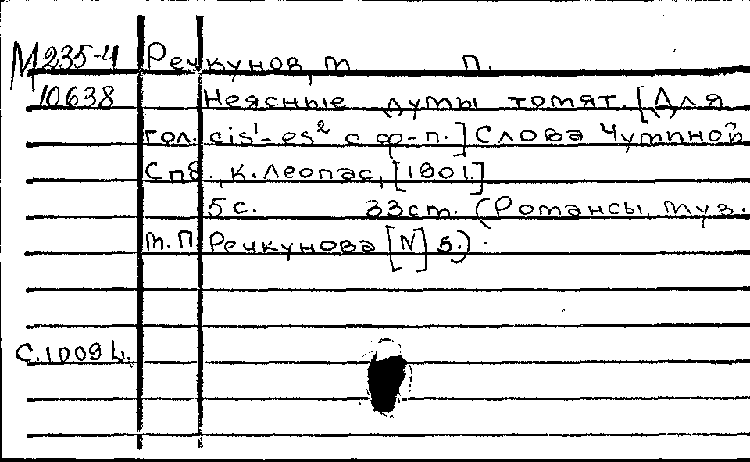 М 235-4 Речкунов, М. П.
10638 Неясные думы томят. [Для
гол. cis¹-es² с ф-п.] Слова Чуминой
Спб., К. Леопас, [1901.]
5 с. 33 см. (Романсы, муз.
М. П. Речкунова [N] 5.).
C. 1009 L.